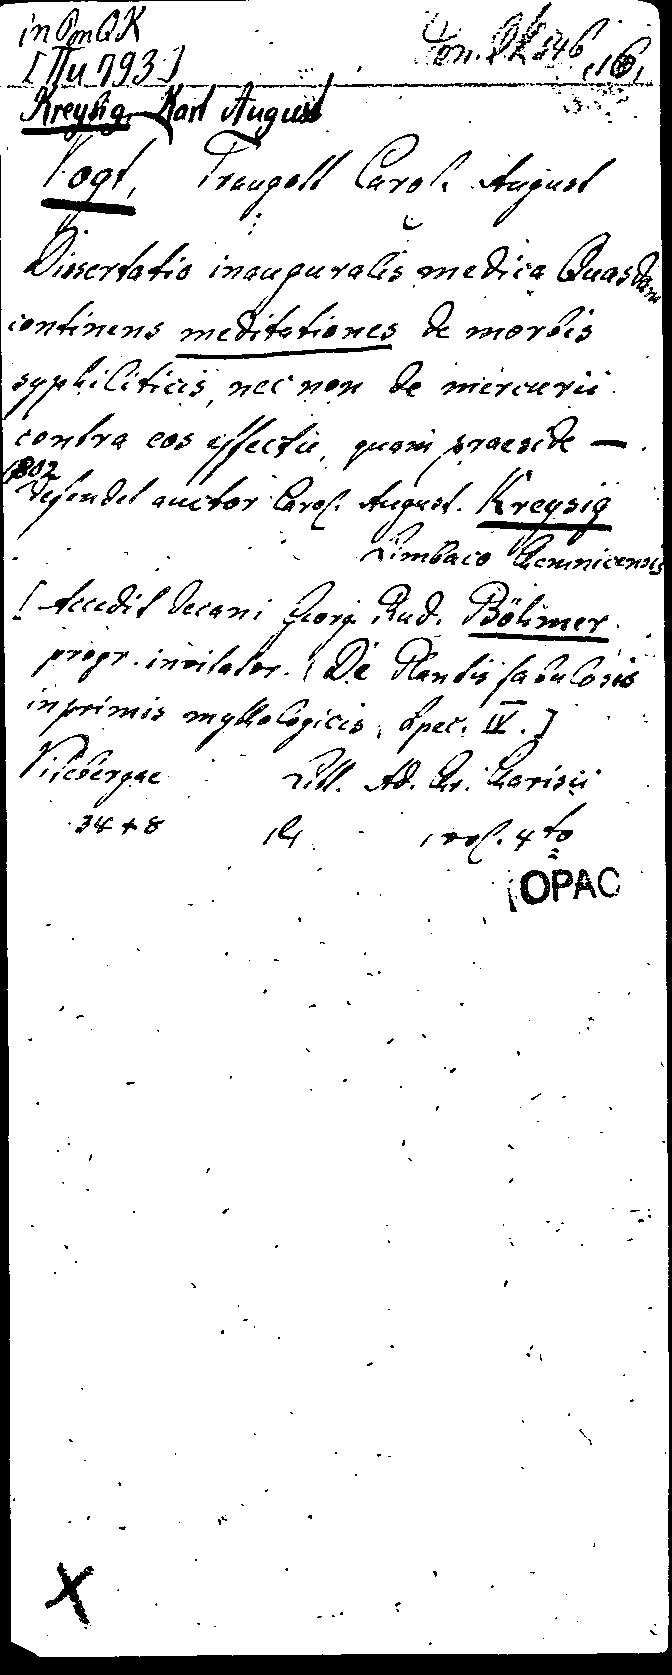 in PmQK
[Nu 793]
Kreysig, Karl August
Vogt, Traugott Carol. August
Dissertatio inauguralis medica Quasdam
continens meditationes de morbis
syphiliticis, nec non de mercurii
contra eos effectu, quam praeside —
1802
defendet auctor Carol. August. Kreysig
Limbaco Chemnicensis
[Accedit decani Georg. Rud. Böhmer
progr. invitator. (De Plantis fabulosis
inprimis mythologicis, Spec. IV.]
Vitebergae Litt. Ad. Chr. Charisii
34 + 8 4to
OPAC
X